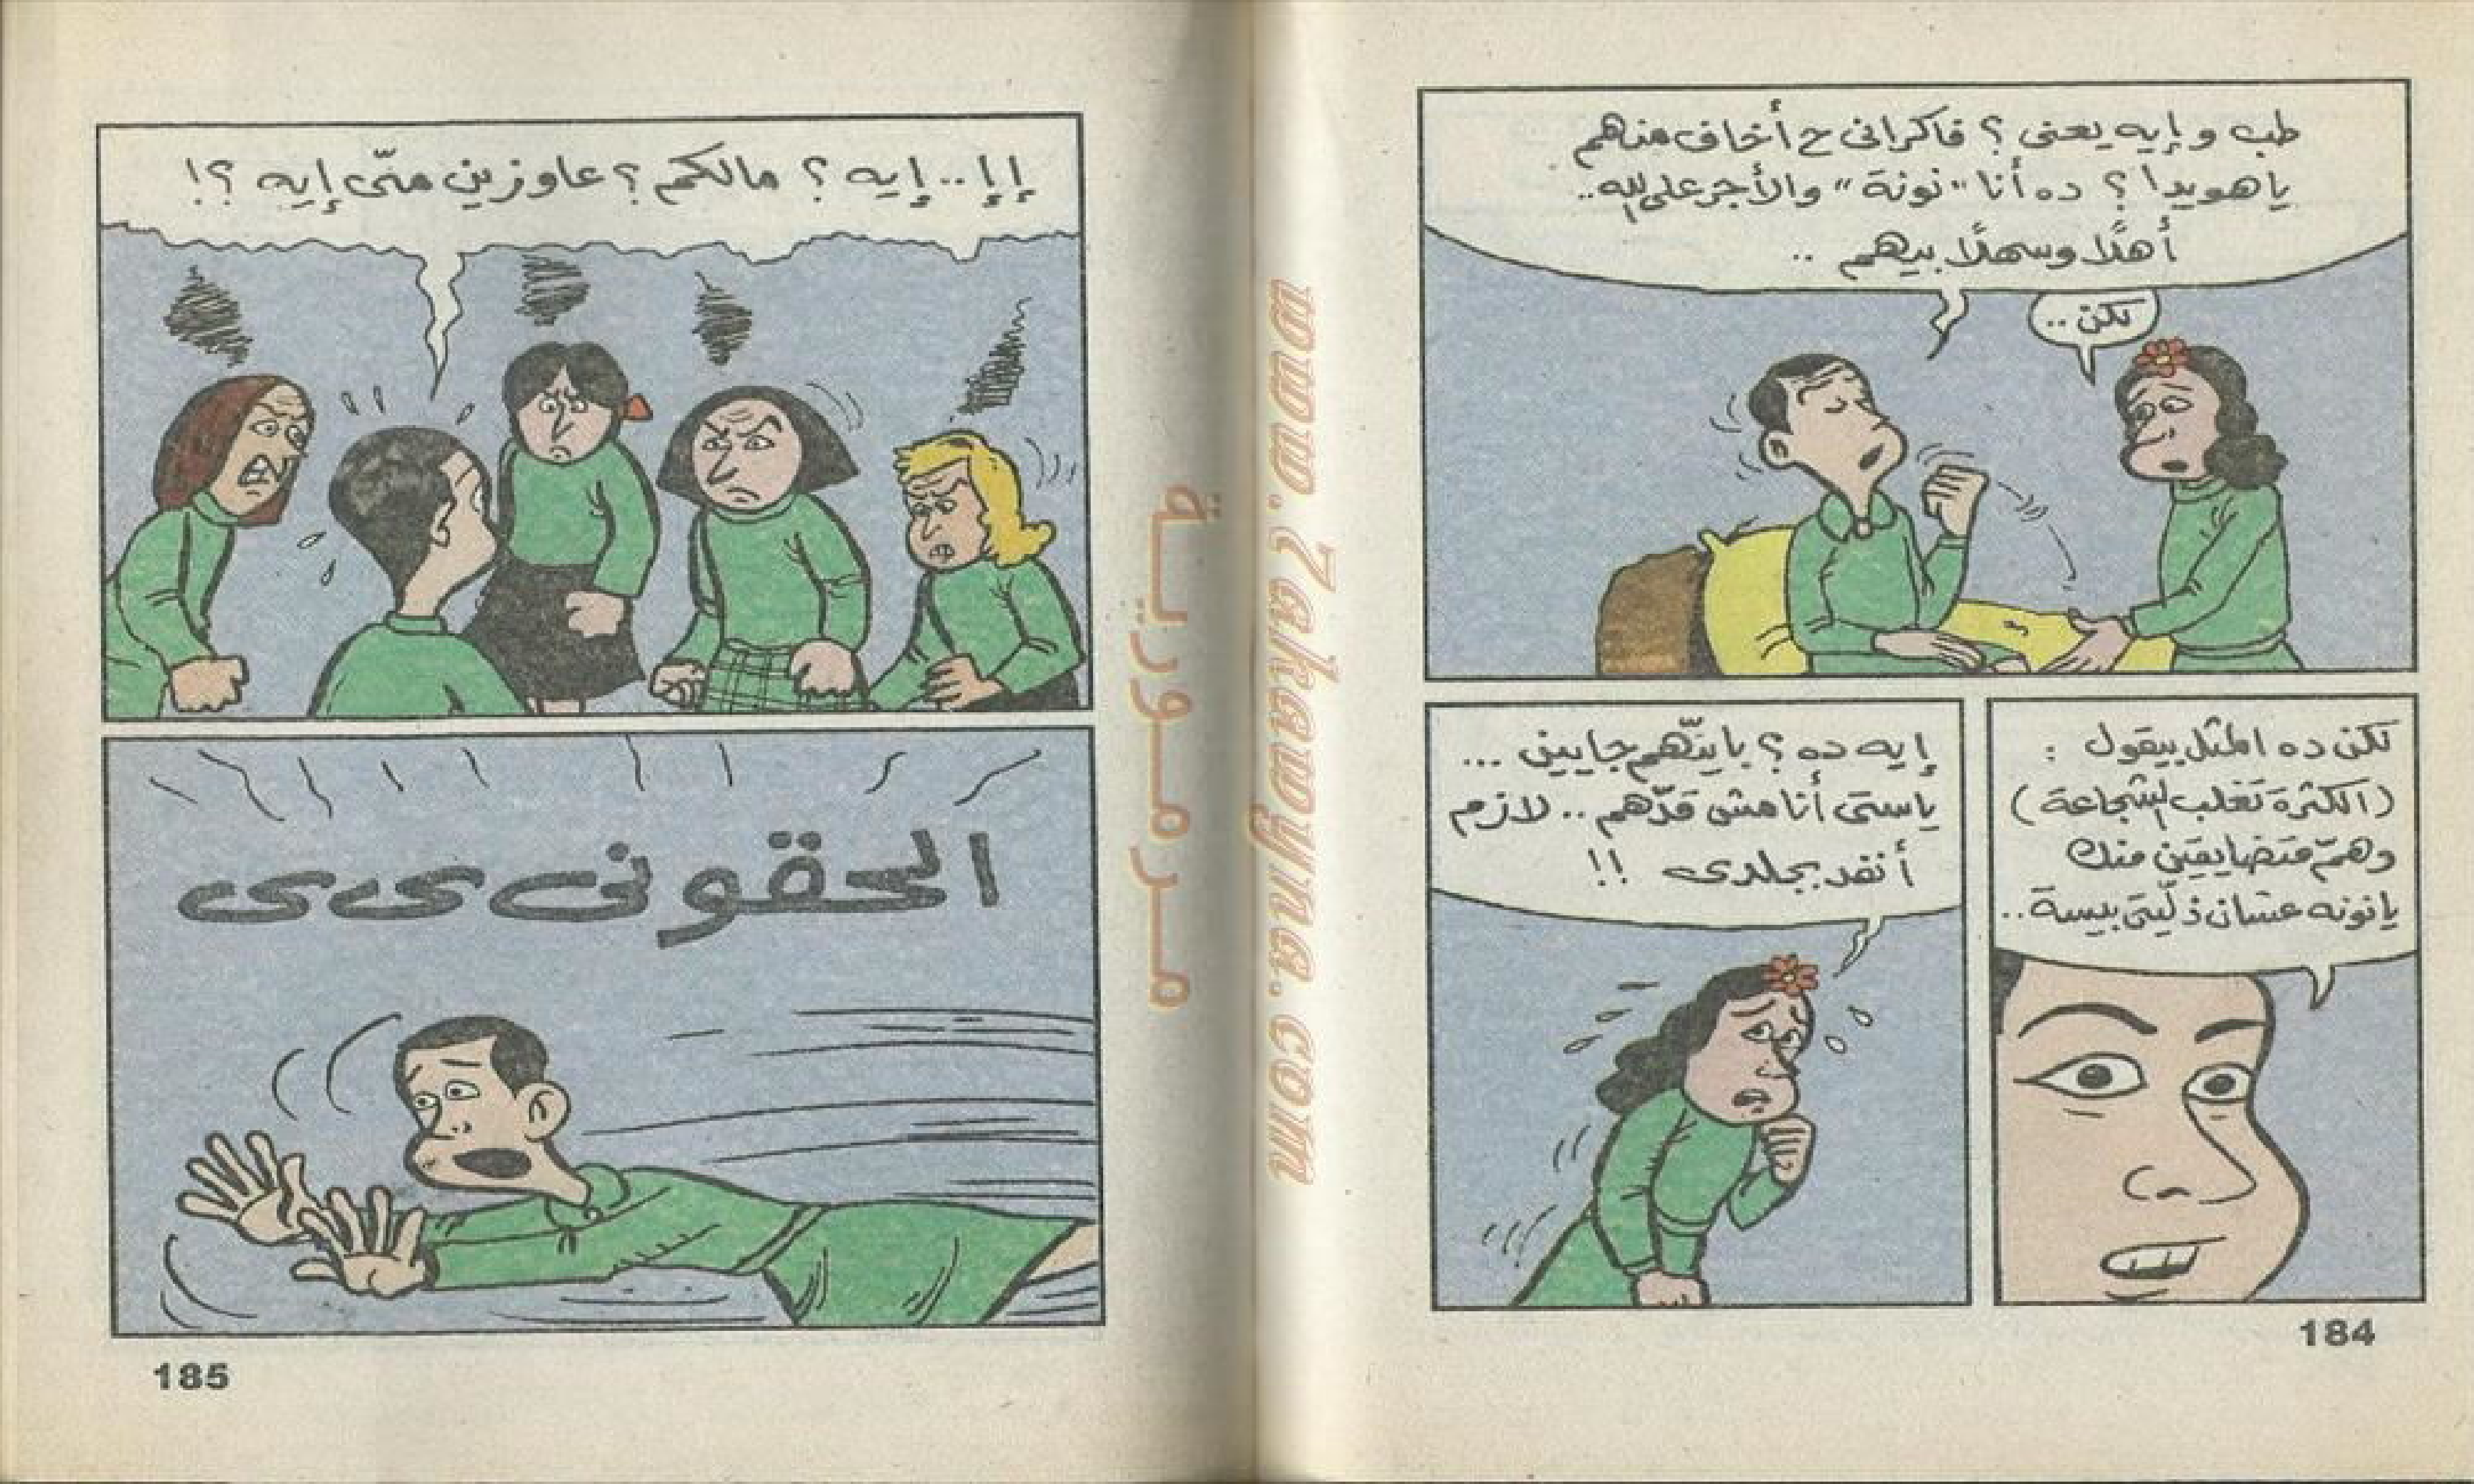 طب وإيه يعنى ؟ فاكرانى ح أخاف منهم
ياهويدا ؟ ده أنا "نونة" والأجر على الله ..
أهلًا وسهلًا بيهم ..
لكن ..
لكن ده المثل بيقول :
(الكثرة تغلب الشجاعة)
وهمّ متضايقين منك
يانونه عشان ذلّيتى بيسة ..
إيه ده ؟ باينّهم جايين ...
ياستى أنا مش قدّهم .. لازم
أنفد بجلدى !!
184
إإ .. إيه ؟ مالكم ؟ عاوزين منّى إيه ؟!
الحقونى ى ى
185
www.Zakawyna.com
مرمورية